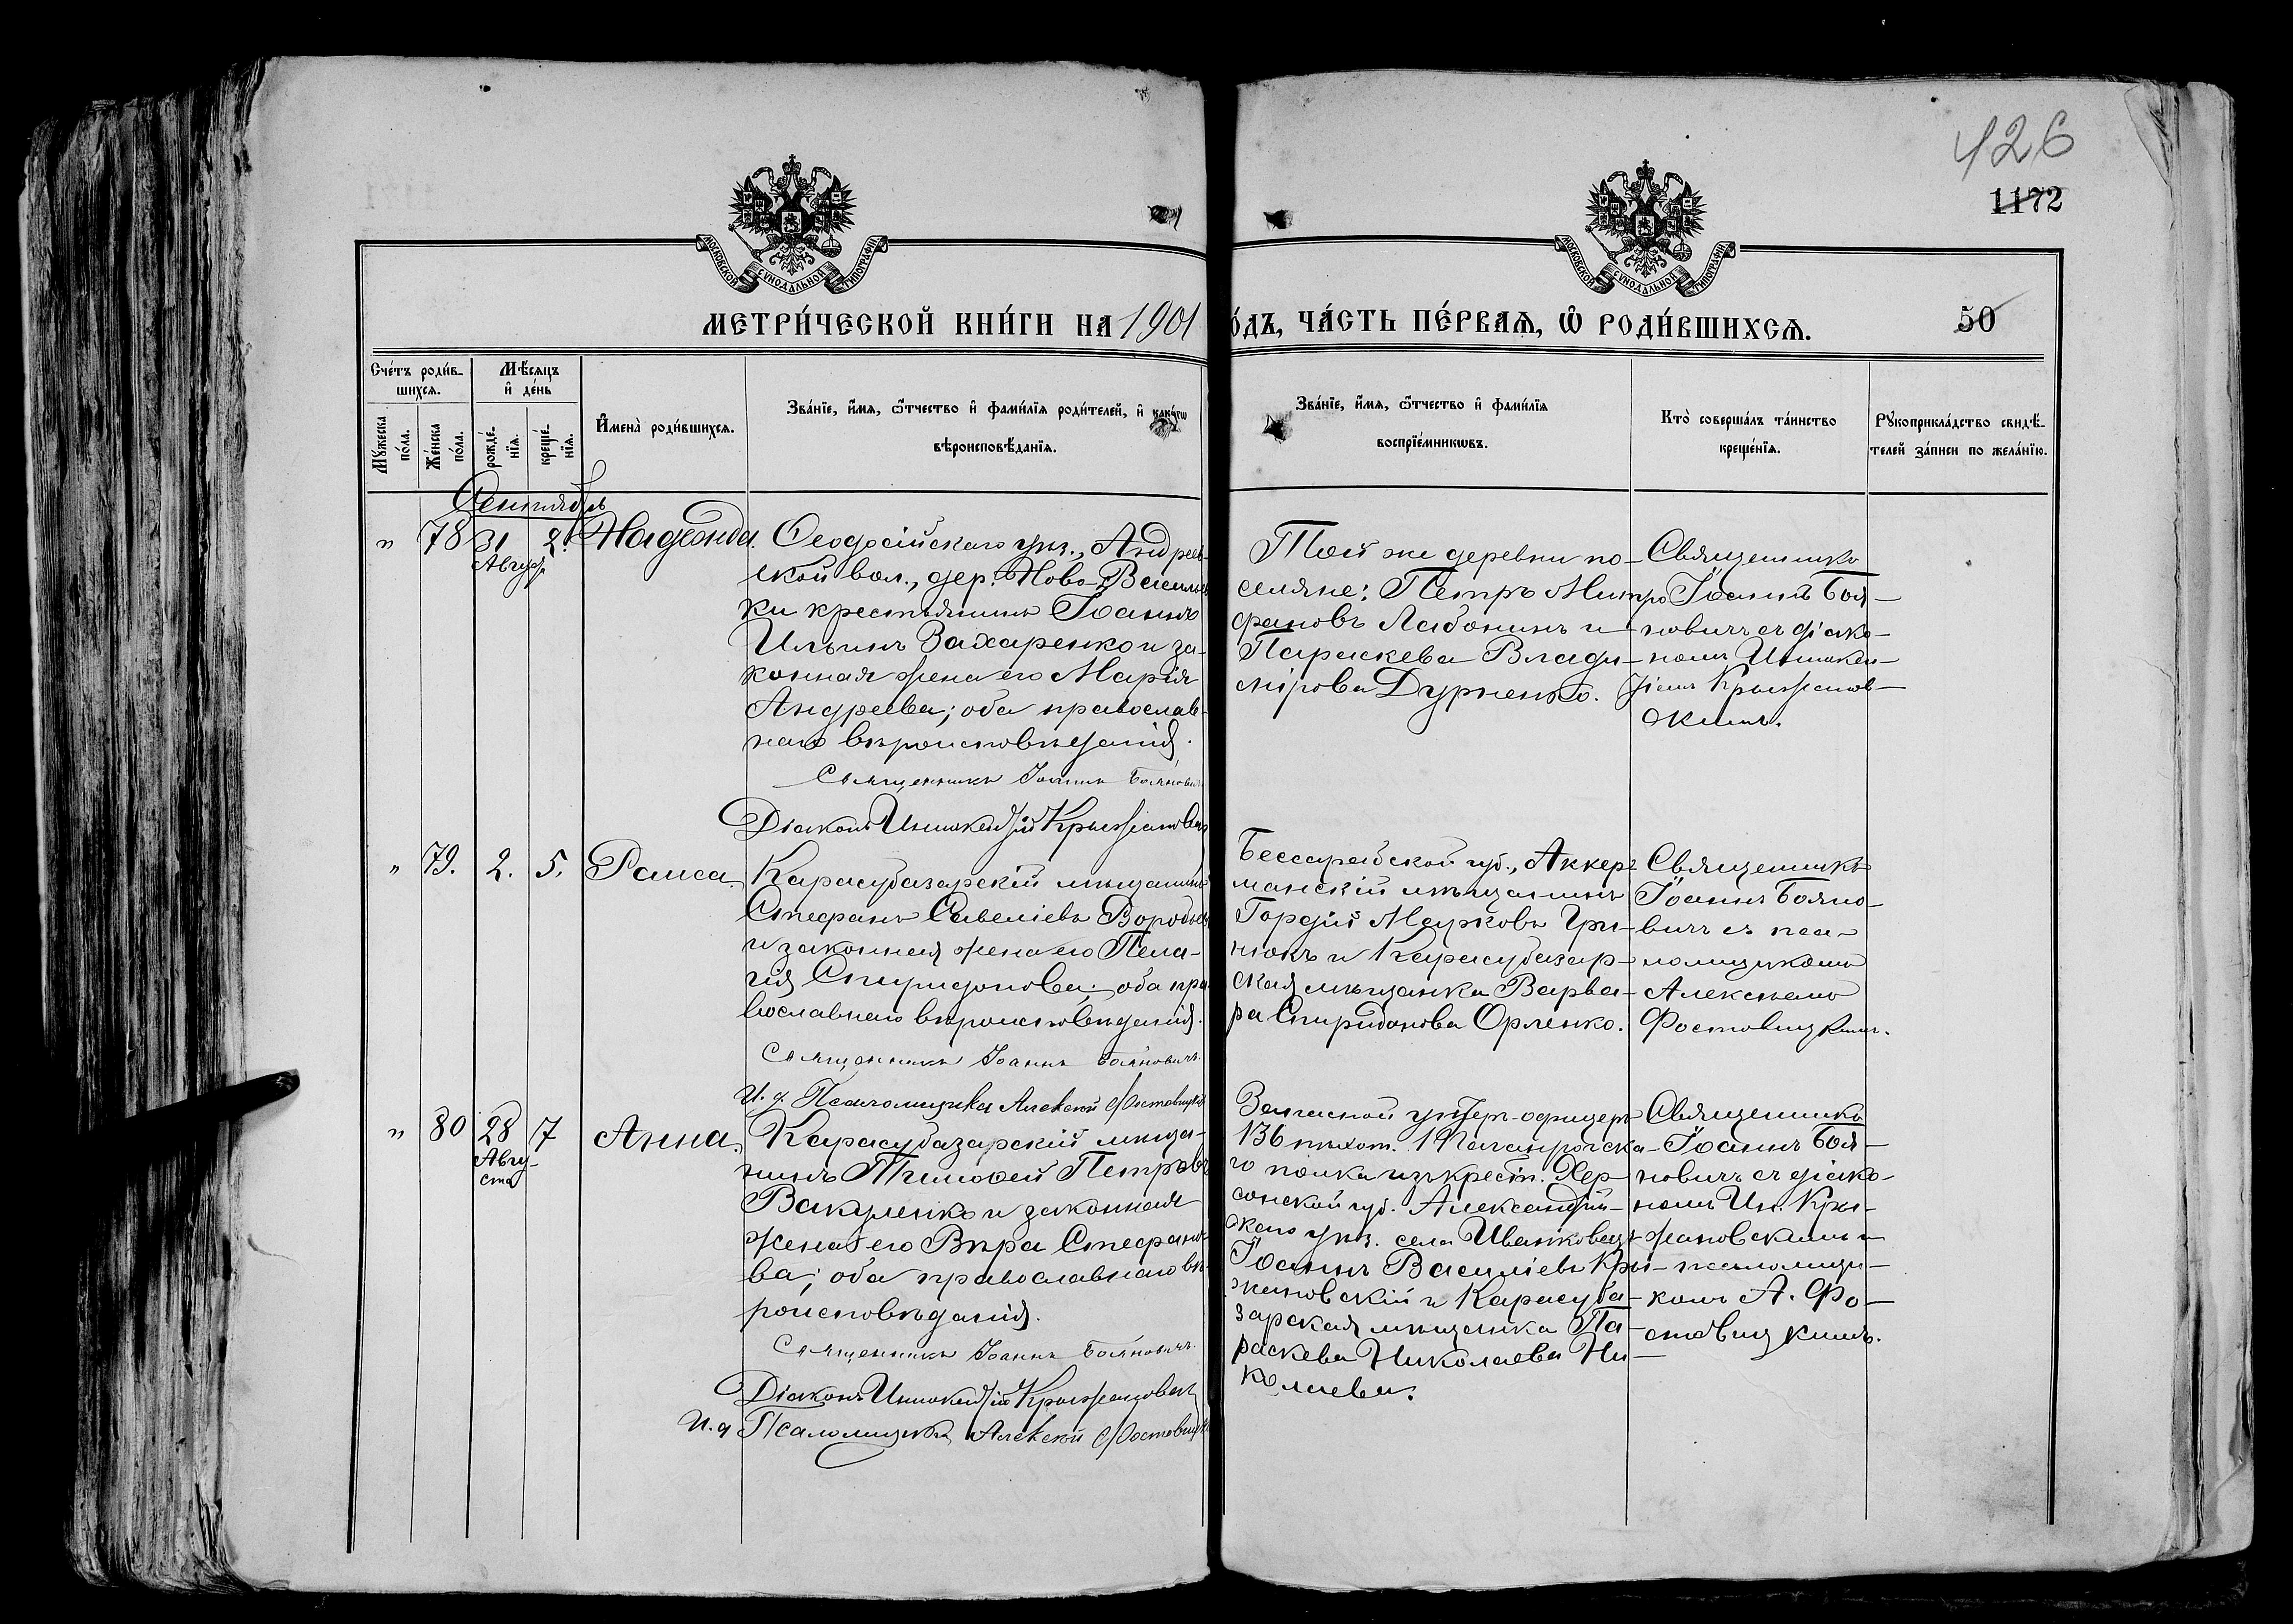 426
1172
МОСКОВСКОЙ СУНОДАЛЬНОЙ ТИПОГРАФІИ
МОСКОВСКОЙ СУНОДАЛЬНОЙ ТИПОГРАФІИ
МЕТРИ́ЧЕСКОЙ КНИ́ГИ НА 1901
О́ДЪ, ЧА́СТЬ ПЕ́РВАѦ, Ѿ РОДИ́ВШИХСѦ.
50
Сче́тъ роди́в-
шихся.
Мꙋжеска
по́ла.
Же́нска
по́ла.
Мѣ́сяцъ
и де́нь
рожде́-
нїя.
креще́-
нїя.
Имена̀ роди́вшихся.
Зва́нїе, и́мя, ѻ҆́тчество и фами́лїя роди́телей, и како́гѡ
вѣроисповѣ́данїя.
Зва́нїе, и́мя, ѻ҆́тчество и фами́лїя
воспрїе́мникѡвъ.
Кто̀ соверша́лъ та́инство
креще́нїя.
Рꙋкоприкла́дство свидѣ́-
телей за́писи по жела́нїю.
Сентябрь
" 78 31 2.
Августа
Надежда.
Ѳеодосійскаго уѣз., Андреев-
ской вол., дер. Ново-Васильев
ки крестьянинъ Іоаннъ
Ильинъ Захаренко и за-
конная жена его Марія
Андреева; оба православ-
наго вѣроисповѣданія.
Священникъ Іоаннъ Бояновичъ
Діаконъ Иннокентій Крыжановскій
Той же деревни по-
селяне: Петръ Митро
фановъ Лабонинъ и
Параскева Влади-
мірова Дурненко.
Священникъ
Іоаннъ Боя-
новичъ съ діако-
номъ Инокен-
тіемъ Крыжанов-
скимъ.
" 79. 2. 5.
Раиса.
Карасубазарскій мѣщанинъ
Стефанъ Савеліевъ Воробьев
и законная жена его Пела-
гія Спиридонова; оба пра
вославнаго вѣроисповѣданія.
Священникъ Іоаннъ Бояновичъ.
И. д. Псаломщика Алексѣй Фостовицкій
Бессарабской губ., Аккер-
манскій мѣщанинъ
Гордій Марковъ Гри-
нюкъ и Карасубазар-
ская мѣщанка Варва-
ра Спиридонова Орленко.
Священникъ
Іоаннъ Бояно-
вичъ съ пса-
ломщикомъ
Алексѣемъ
Фостовицкимъ.
" 80 28 7
Авгу-
ста
Анна.
Карасубазарскій мѣща-
нинъ Тимоѳей Петровъ
Вакуленко и законная
жена его Вѣра Стефано-
ва; оба православнаго вѣ-
роисповѣданія.
Священникъ Іоаннъ Бояновичъ.
Діаконъ Иннокентій Крыжановскій
И. д Псаломщика Алексѣй Фостовицкій
Запасной унтеръ-офицеръ
136 пѣхот. Таганрогска-
го полка изъ крест. Хер-
сонской губ. Александрій-
скаго уѣз. села Иванковецъ
Іоаннъ Василіевъ Кры-
жановскій и Карасуба-
зарская мѣщанка Па-
раскева Николаева Ни-
колаева.
Священникъ
Іоаннъ Боя-
новичъ съ діако-
номъ Ин. Кры-
жановскимъ и
псаломщи-
комъ А. Фо-
стовицкимъ.